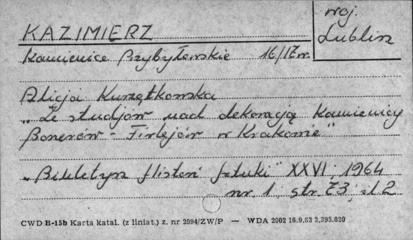 KAZIMIERZ
woj. Lublin
Kamienice Przybyłowskie 16/17 w.
Alicja Kurzątkowska
"Ze studjów nad dekoracją Kamienicy
Bonerów - Firlejów w Krakowie"
"Biuletyn Historii Sztuki" XXVI, 1964
nr. 1 str. 73 il 2
CWD B-15b Karta katal. (z liniat.) z. nr 2094/ZW/P — WDA 2002 16.9.63 2,295.020